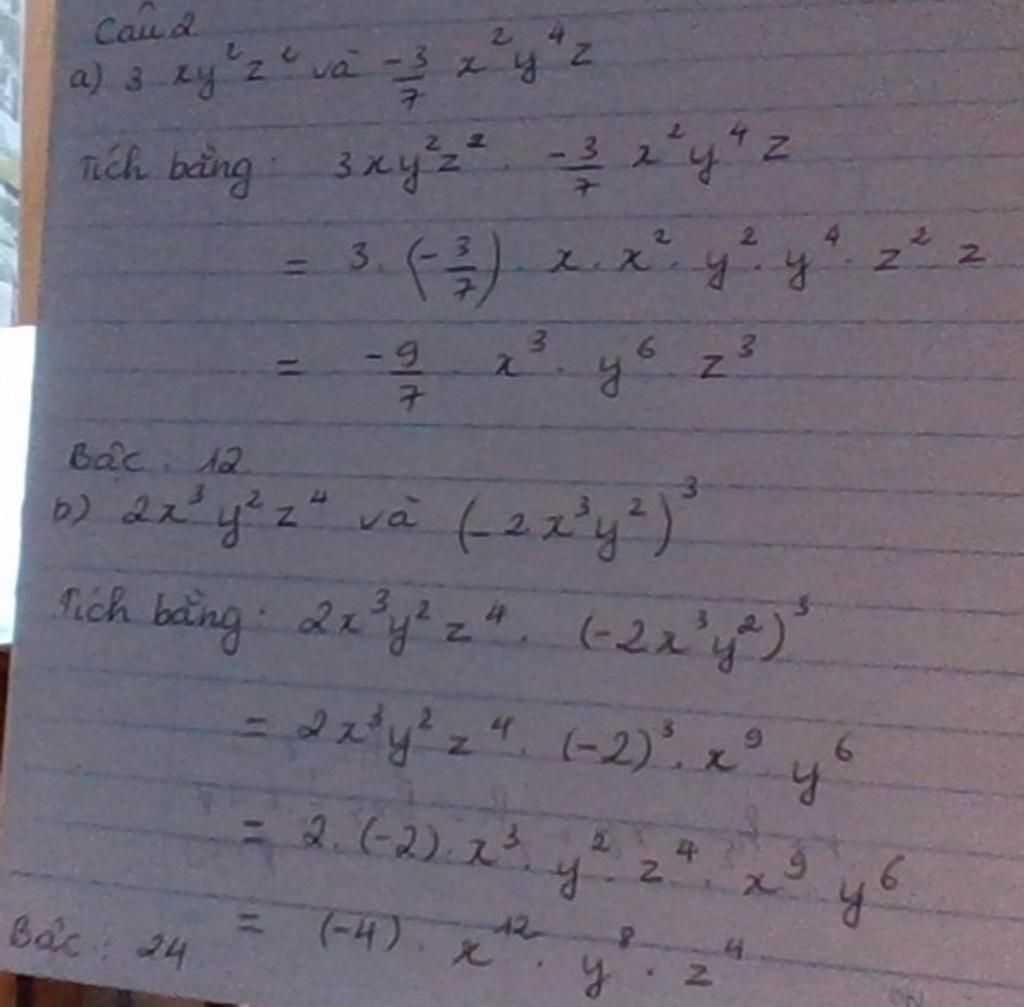 Câu 2
a) 3 xy²z² và -3/7 x²y⁴z
Tích bằng: 3xy²z² . -3/7 x²y⁴z
= 3. (-3/7) . x . x² . y² . y⁴ . z² . z
= -9/7 x³ . y⁶ z³
Bậc : 12
b) 2x³y²z⁴ và (-2x³y²)³
Tích bằng: 2x³y²z⁴ . (-2x³y²)³
= 2x³y²z⁴ . (-2)³ . x⁹ y⁶
= 2 . (-2) . x³ . y² . z⁴ . x⁹ y⁶
= (-4) . x¹² . y⁸ . z⁴
Bậc : 24